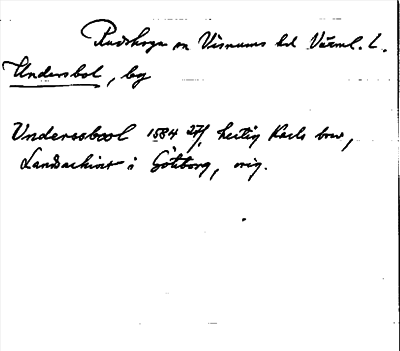 Rudskoga sn Visnums hd Värml. l.
Undersbol, by
Underssbool 1584 27/1, hertig Karls brev,
Landsarkivet i Göteborg, orig.